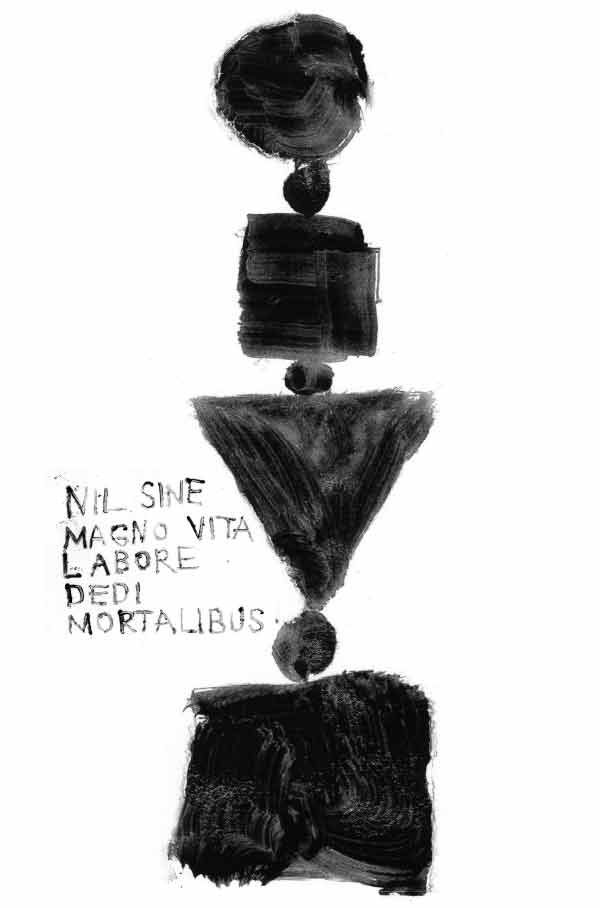 NIL SINE
MAGNO VITA
LABORE
DEDI
MORTALIBUS.